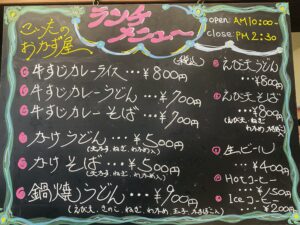 こいたの
おかず屋
ランチ
メニュー
open AM10:00~
close PM2:30
(税込)
牛すじカレーライス…¥800円
牛すじカレーうどん…¥700円
牛すじカレーそば…¥700円
かけうどん…¥500円
(天カス、ねぎ、わかめ入)
かけそば…¥500円
(天カス、ねぎ、わかめ入)
鍋焼うどん…¥900円
(えび天、きのこ、ねぎ、わかめ、玉子、かまぼこ)
えび天うどん
…¥800円
えび天そば
…¥800円
(えび天、ねぎ、
生ビール
…¥400円
Hotコーヒー
…¥150円
Iceコーヒー
…¥200円